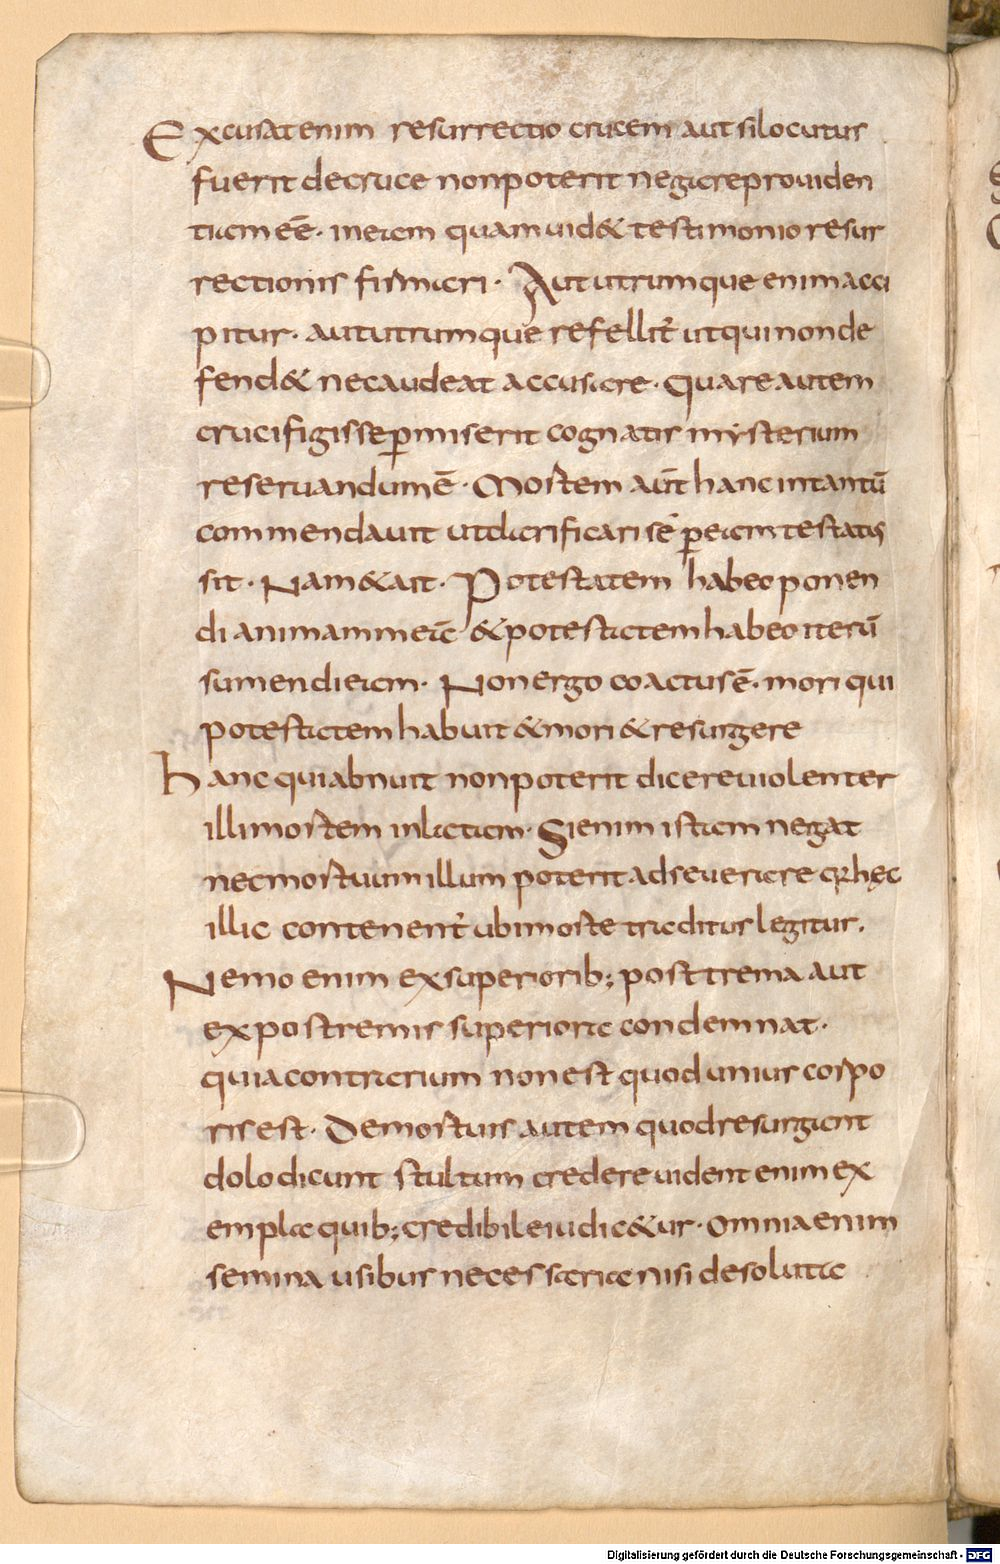 Excusat enim resurrectio crucem aut si locutus
fuerit de cruce non poterit negare prouiden
tiam eē· meam quam uid& testimonio resur
rectionis firmari· Aut utrumque enim acci
pitur· aut utrumque refellit̄ ut qui non de
fend& nec audeat accusare· Quare autem
crucifigi se p̲miserit cognatis mysterium
reseruandum ē· Mortem aūt hanc intantū
commendauit ut clarificari se p̲ eam testatus
sit· Nam & ait· Potestatem habeo ponen
di animam meā & potestatem habeo iterū
sumendi eam· Non ergo coactus ē· mori qui
potestatem habuit & mori & resurgere
hanc qui abnuit non poterit dicere uiolenter
illi mortem inlatam· Si enim istam negat
nec mortuum illum poterit adseuerare quia hęc
illic contenent̄ ubi morte traditus legitur.
Nemo enim ex superiorib; posttrema aut
ex postremis superiora condemnat·
quia contrarium non est quod unius corpo
ris est· De mortuis autem quod resurgant
dolo dicunt stultum credere uident enim ex
empla quib; credibile iudic&ur· Omnia enim
semina usibus necessaria nisi desoluta
Digitalisierung gefördert durch die Deutsche Forschungsgemeinschaft - DFG